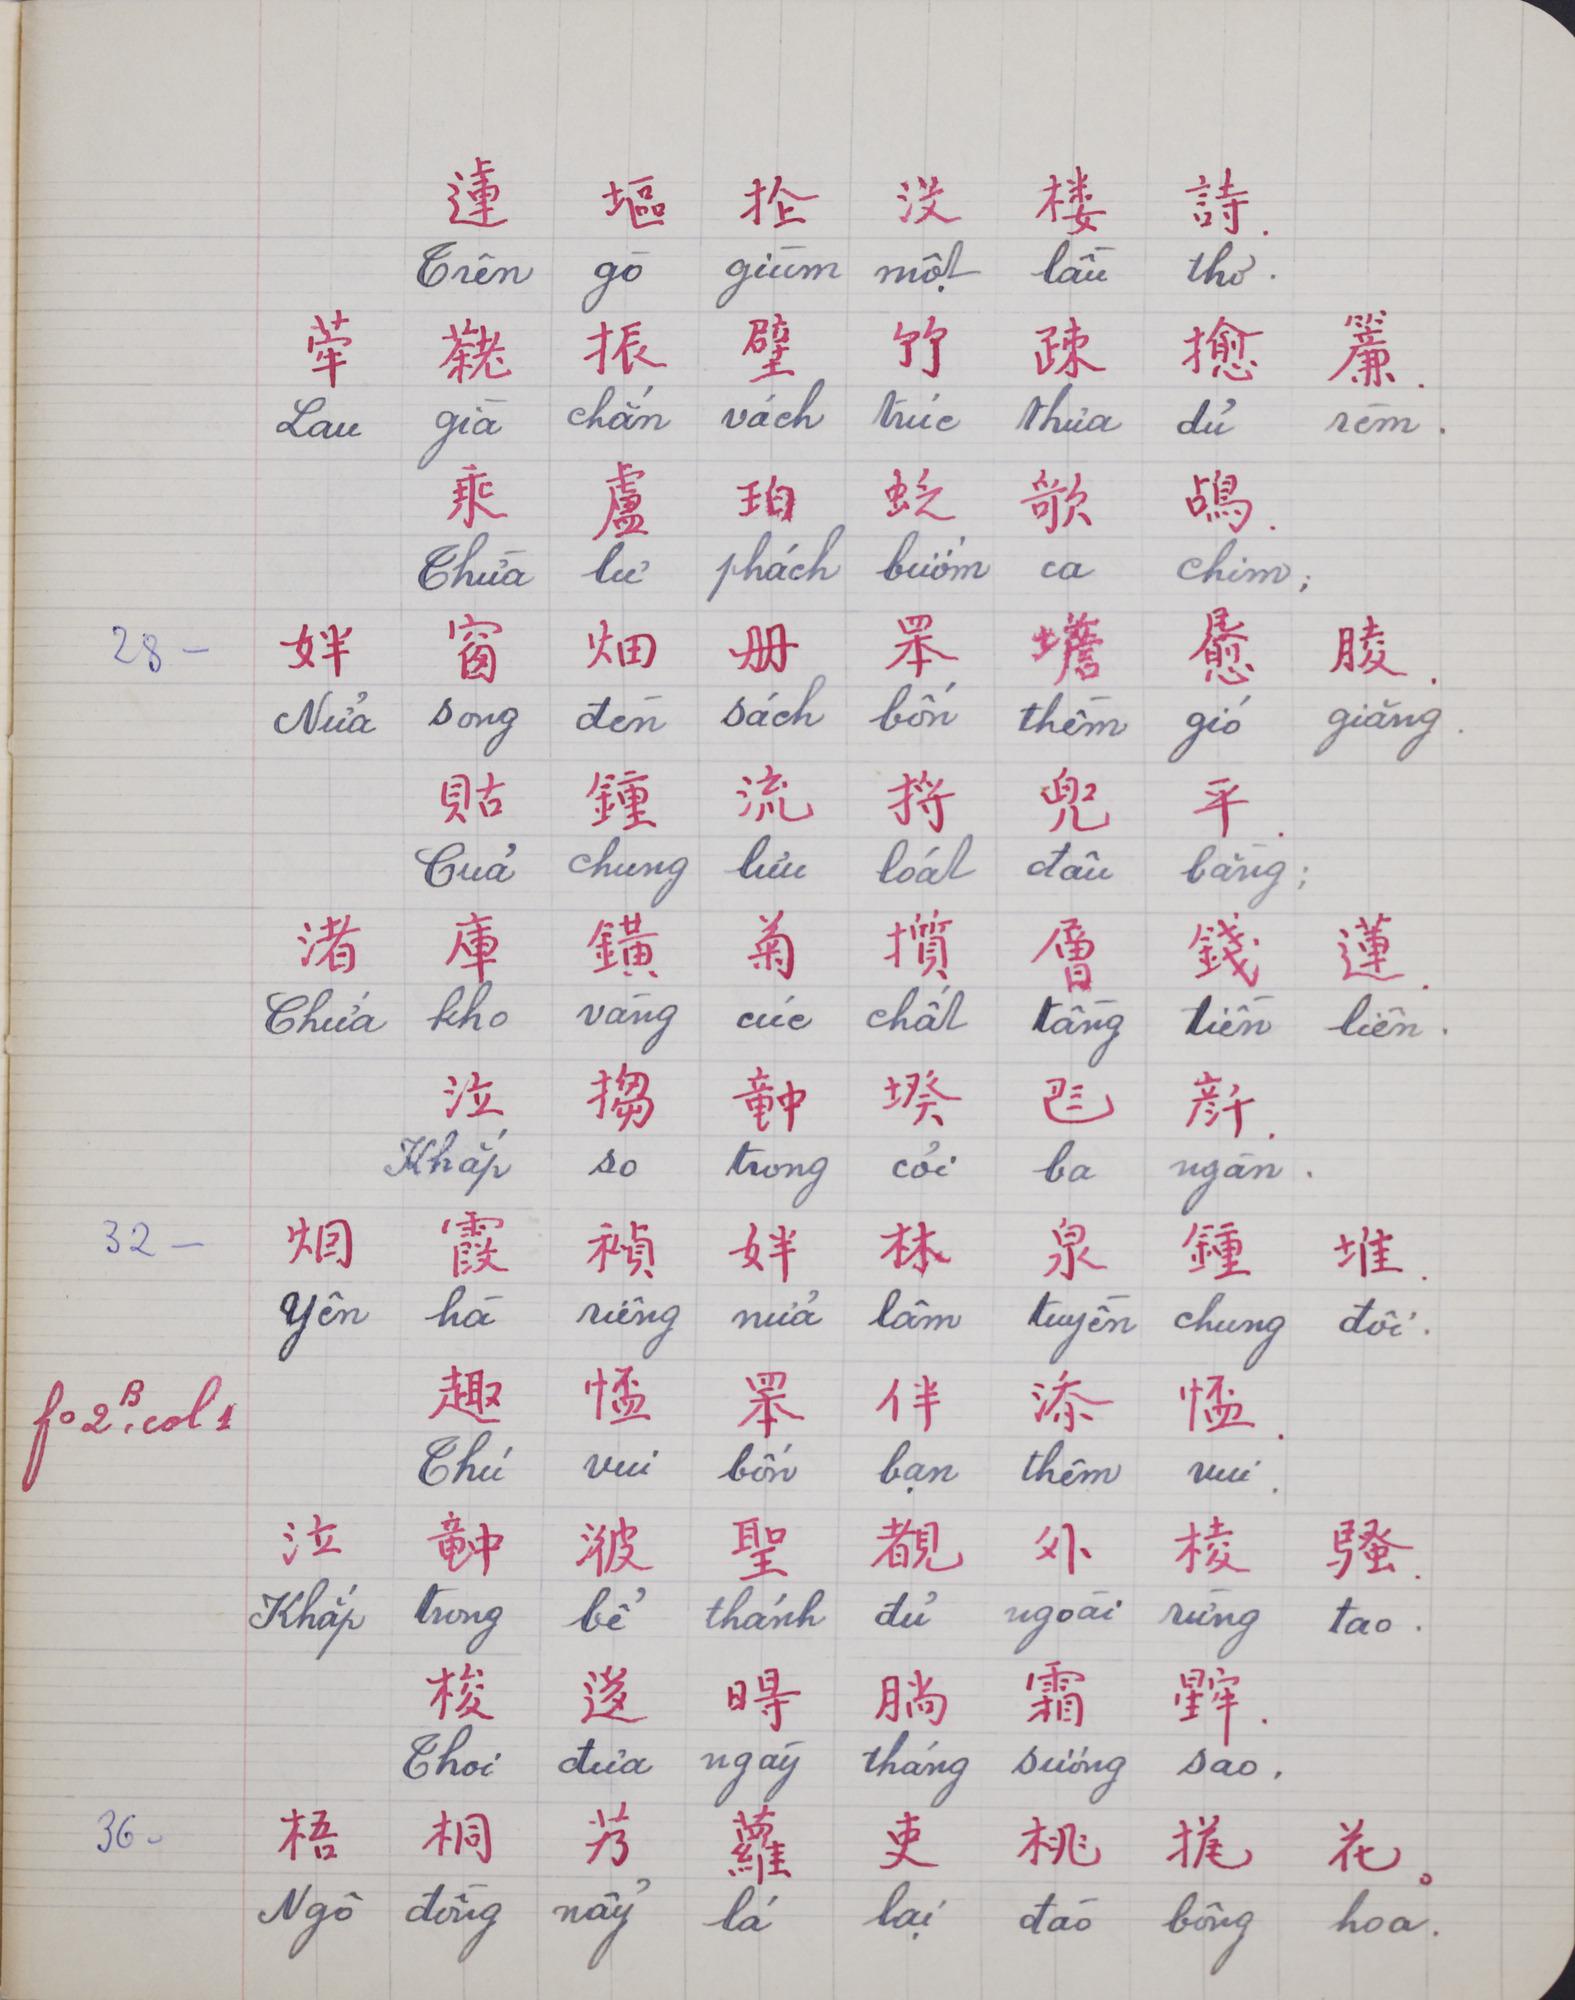 蓮 塸 拴 没 楼 詩.
Trên gò giùm một lầu thơ.
荦 𦓅 振 壁 竹 疎 𢷮 簾.
Lau già chắn vách trúc thưa dủ rèm.
乘 盧 珀 𧊉 歌 鴣.
Thừa lư phách bướm ca chim;
28 – 姅 窗 畑 册 罘 𡑱 𩙌 䏾.
Nửa song đèn sách bốn thềm gió giăng.
貼 鍾 流 捋 兜 平.
Cuả chung lưu loát đâu bằng;
渚 庫 鐄 菊 攢 層 錢 蓮.
Chứa kho vàng cúc chất tầng tiền liên.
泣 搊 𥪝 𡎝 𠀧 𠦳.
Khắp so trong cỏi ba ngàn.
32 – 烟 霞 禎 姅 林 泉 鍾 堆.
Yên hà riêng nửa lâm tuyền chung đôi.
fo 2B. col 1 趣 𢝙 罘 伴 添 𢝙.
Thú vui bốn bạn thêm vui.
泣 𥪝 㴜 聖 覩 外 棱 騷.
Khắp trong bể thánh đủ ngoài rừng tao.
梭 迻 𣈜 𣎃 霜 𣋀.
Thoi đưa ngày tháng sương sao.
36 – 梧 桐 艿 蘿 吏 桃 㧡 花。
Ngô đồng nẩy lá lại đào bông hoa.